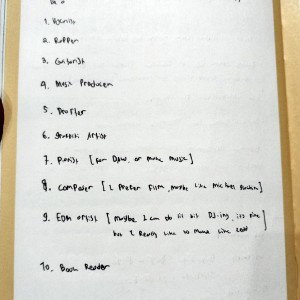 1. Vocalist
2. Rapper
3. Guitarist
4. Music Producer
5. Drifter
6. Graffiti Artist
7. Pianist [For DAW, or make music]
8. Composer [I Prefer Film, maybe like
9. EDM artist [Maybe I can do lit bit DJ-ing, its fine
but I Really like to make Live
10. Book Reader